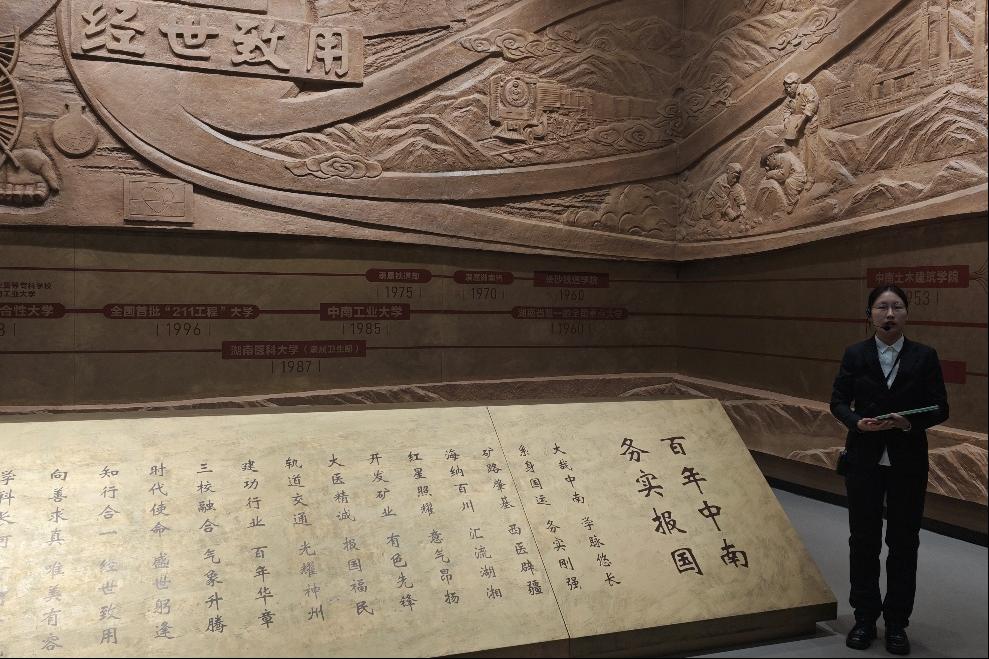 经世致用
隶属铁道部
1975
1970
长沙铁道学院
1960
中南土木建筑学院
953
合性大学
全国首批“211工程”大学
1996
中南工业大学
1985
1960
湖南医科大学（隶属卫生部）
1987
百年中南
务实报国
大哉中南 学脉悠长
系身国运 务实刚强
矿路肇基 西医辟疆
海纳百川 汇流湖湘
红星照耀 意气昂扬
开发矿业 有色先锋
大医精诚 报国福民
轨道交通 光耀神州
建功行业 百年华章
三校融合 气象升腾
时代使命 盛世躬逢
知行合一 经世致用
向善求真 唯美有容